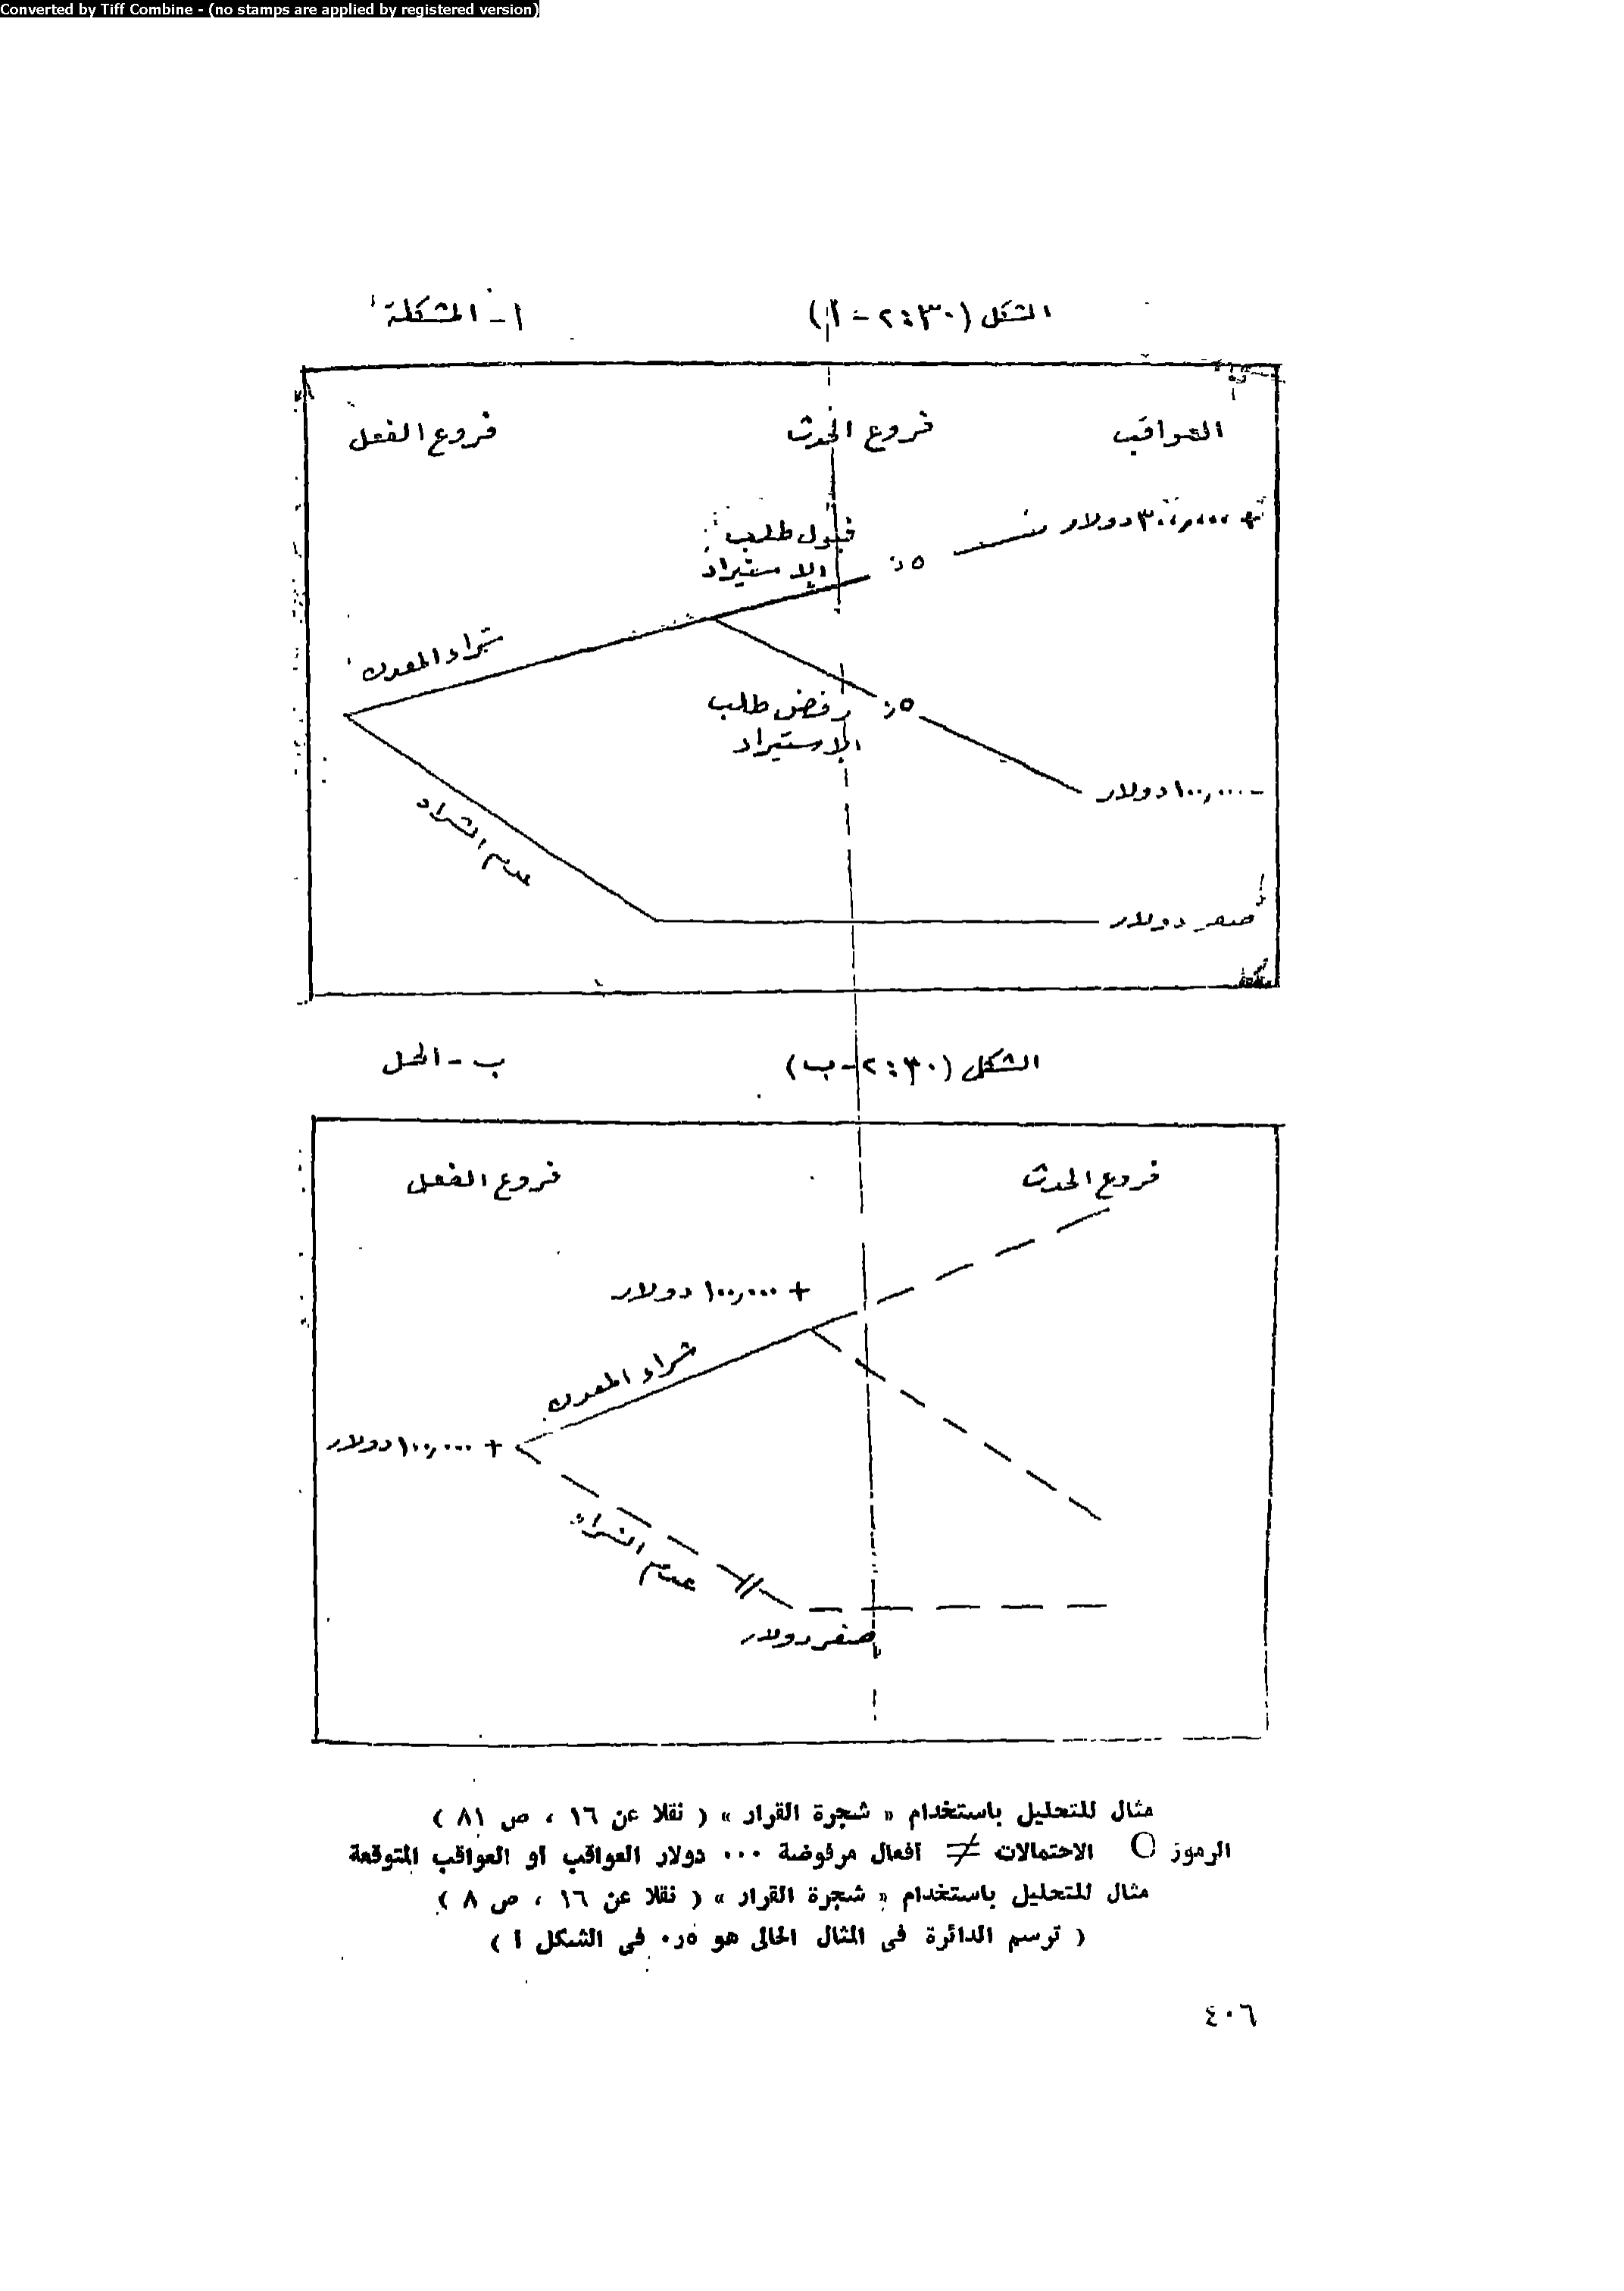 Converted by Tiff Combine - (no stamps are applied by registered version)
الشكل (٢:٣٠ - ا) ا - المشكلة
العواقب فروع الحدث فروع الفعل
+ ٣٠٠,٠٠٠ دولار
قبول طلب
الاستيراد
٥ر
شراء المعدن
رفض طلب
الاستيراد
٥ر
- ١٠٠,٠٠٠ دولار
عدم الشراء
صفر دولار
الشكل (٢:٣٠ - ب) ب - الحل
فروع الحدث فروع الفعل
+ ١٠٠,٠٠٠ دولار
شراء المعدن
+ ١٠٠,٠٠٠ دولار
عدم الشراء
صفر دولار
مثال للتحليل باستخدام « شجرة القرار » ( نقلا عن ١٦ ، ص ٨١ )
الرموز O الاحتمالات ≠ أفعال مرفوضة ٠٠٠ دولار العواقب أو العواقب المتوقعة
مثال للتحليل باستخدام « شجرة القرار » ( نقلا عن ١٦ ، ص ٨ )
( ترسم الدائرة فى المثال الحالى هو ٥ر٠ فى الشكل أ )
٤٠٦